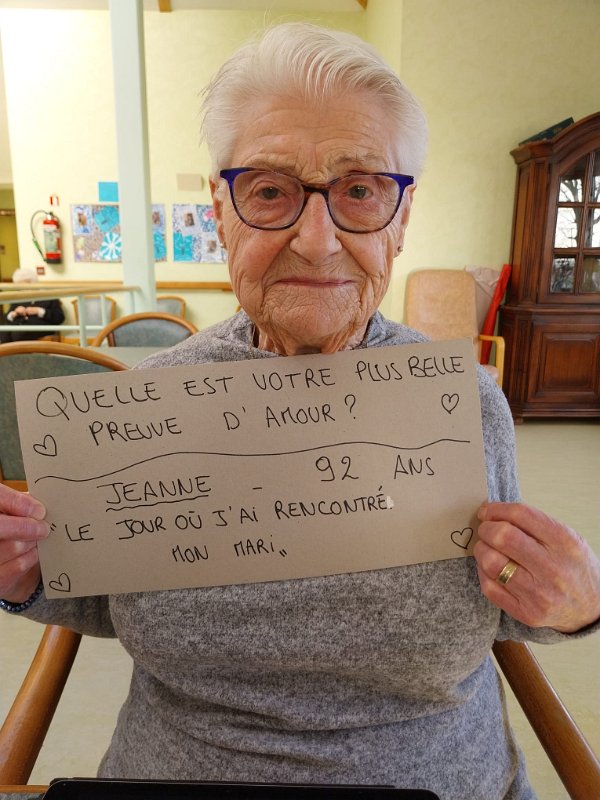 QUELLE EST VOTRE PLUS BELLE
PREUVE D'AMOUR ?
JEANNE - 92 ANS
"LE JOUR OÙ J'AI RENCONTRÉ
MON MARI"